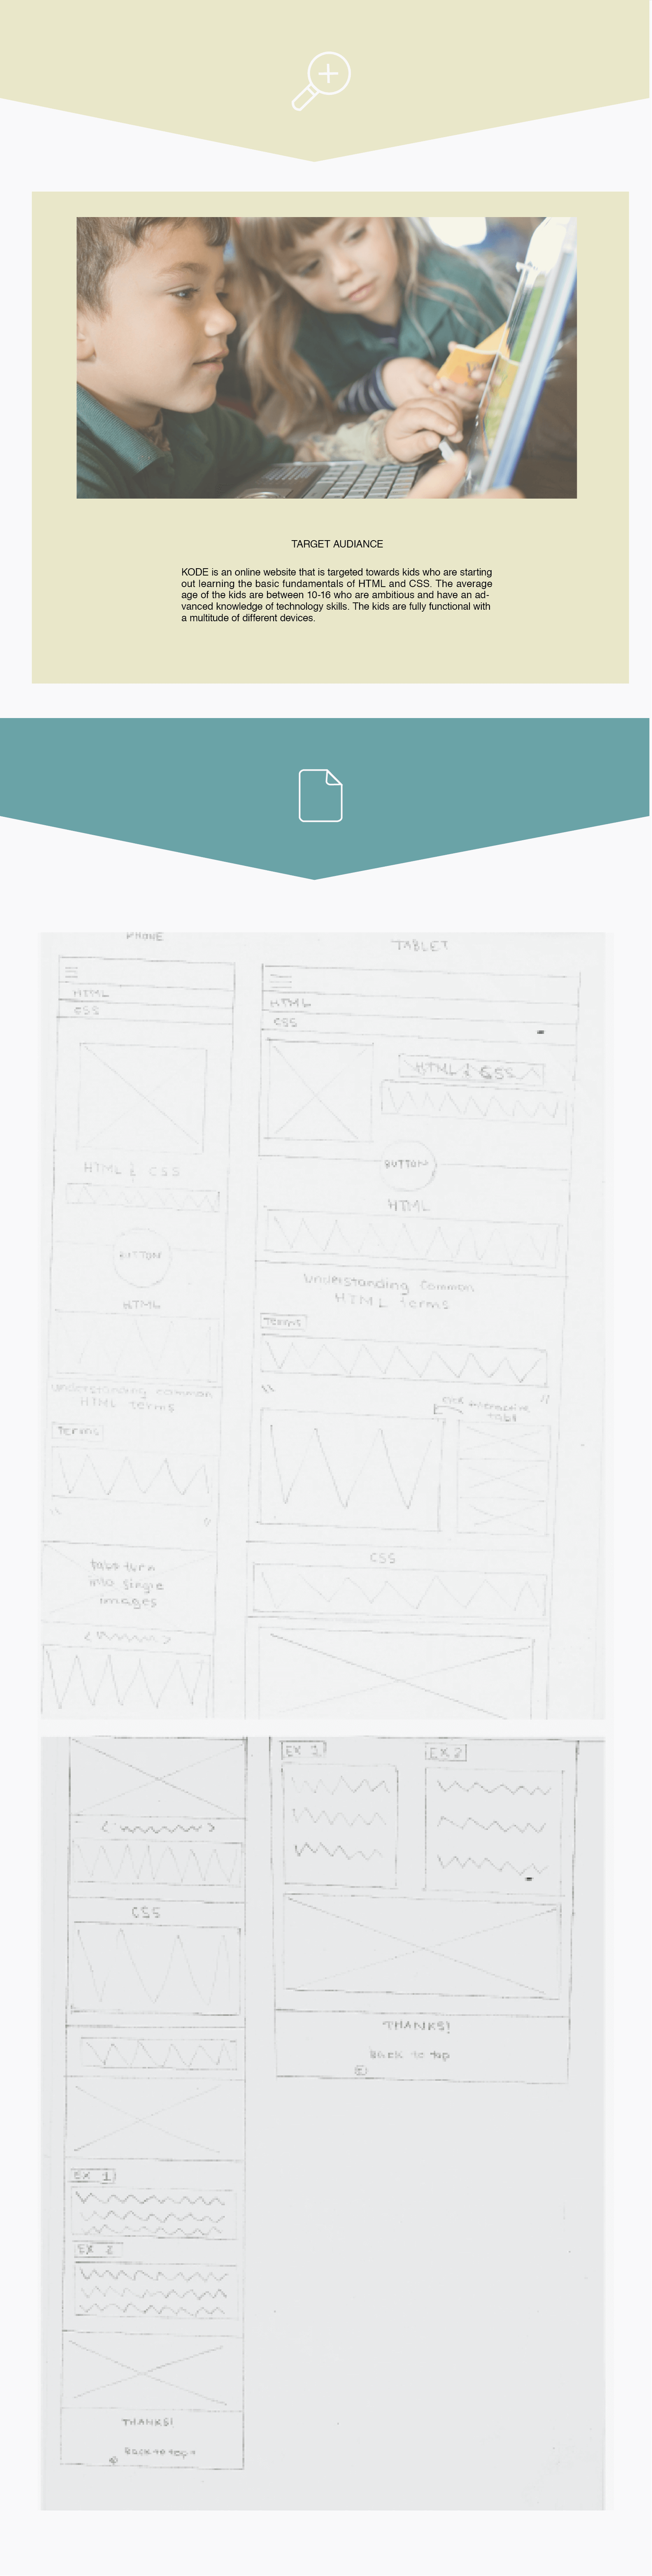 TARGET AUDIANCE
KODE is an online website that is targeted towards kids who are starting
out learning the basic fundamentals of HTML and CSS. The average
age of the kids are between 10-16 who are ambitious and have an ad-
vanced knowledge of technology skills. The kids are fully functional with
a multitude of different devices.
PHONE
HTML
CSS
HTML & CSS
BUTTON
HTML
understanding common
HTML terms
Terms
tabs turn
into single
images
TABLET
HTML
CSS
HTML & CSS
BUTTON
HTML
Understanding Common
HTML terms
Terms
click interactive
tabs
CSS
CSS
EX 1
EX 2
THANKS!
Back to top
EX 1
EX 2
THANKS!
Back to top